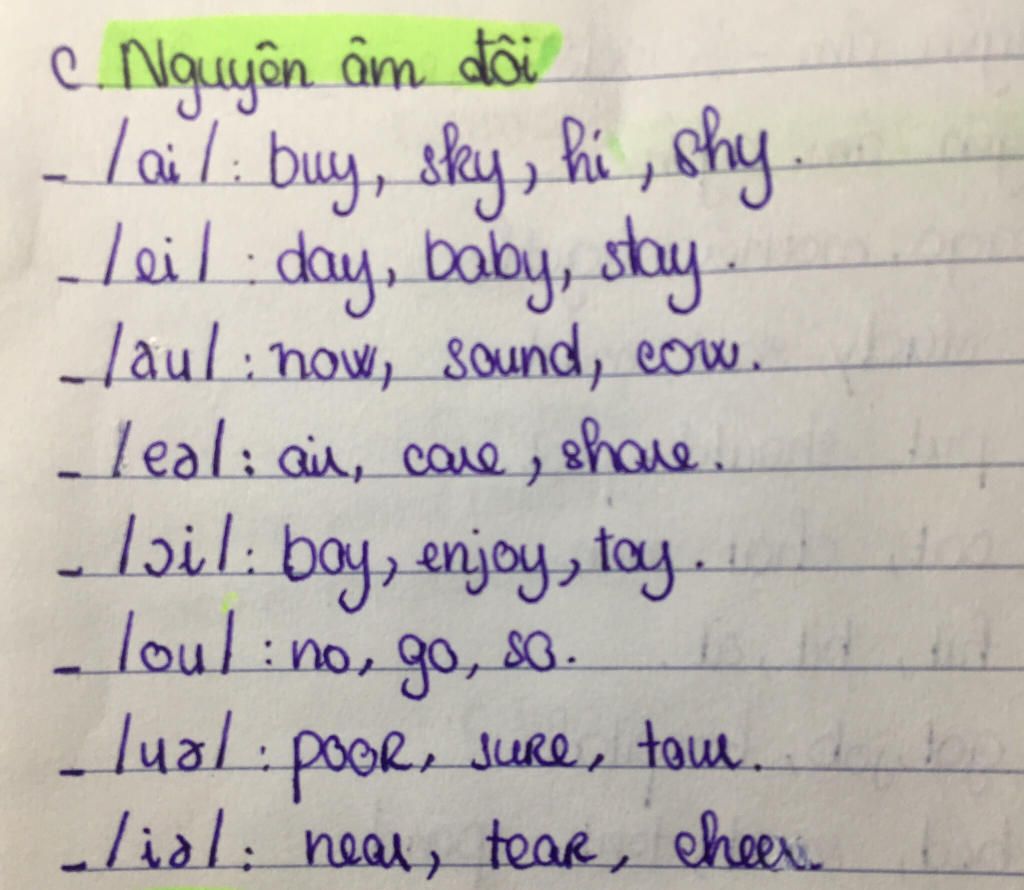 c. Nguyên âm đôi
- /ai/: buy, sky, hi, shy.
- /ei/: day, baby, stay.
- /au/: now, sound, cow.
- /eə/: air, care, share.
- /ɔi/: boy, enjoy, toy.
- /ou/: no, go, so.
- /uə/: pooR, suRe, tour.
- /iə/: near, teaR, cheer.